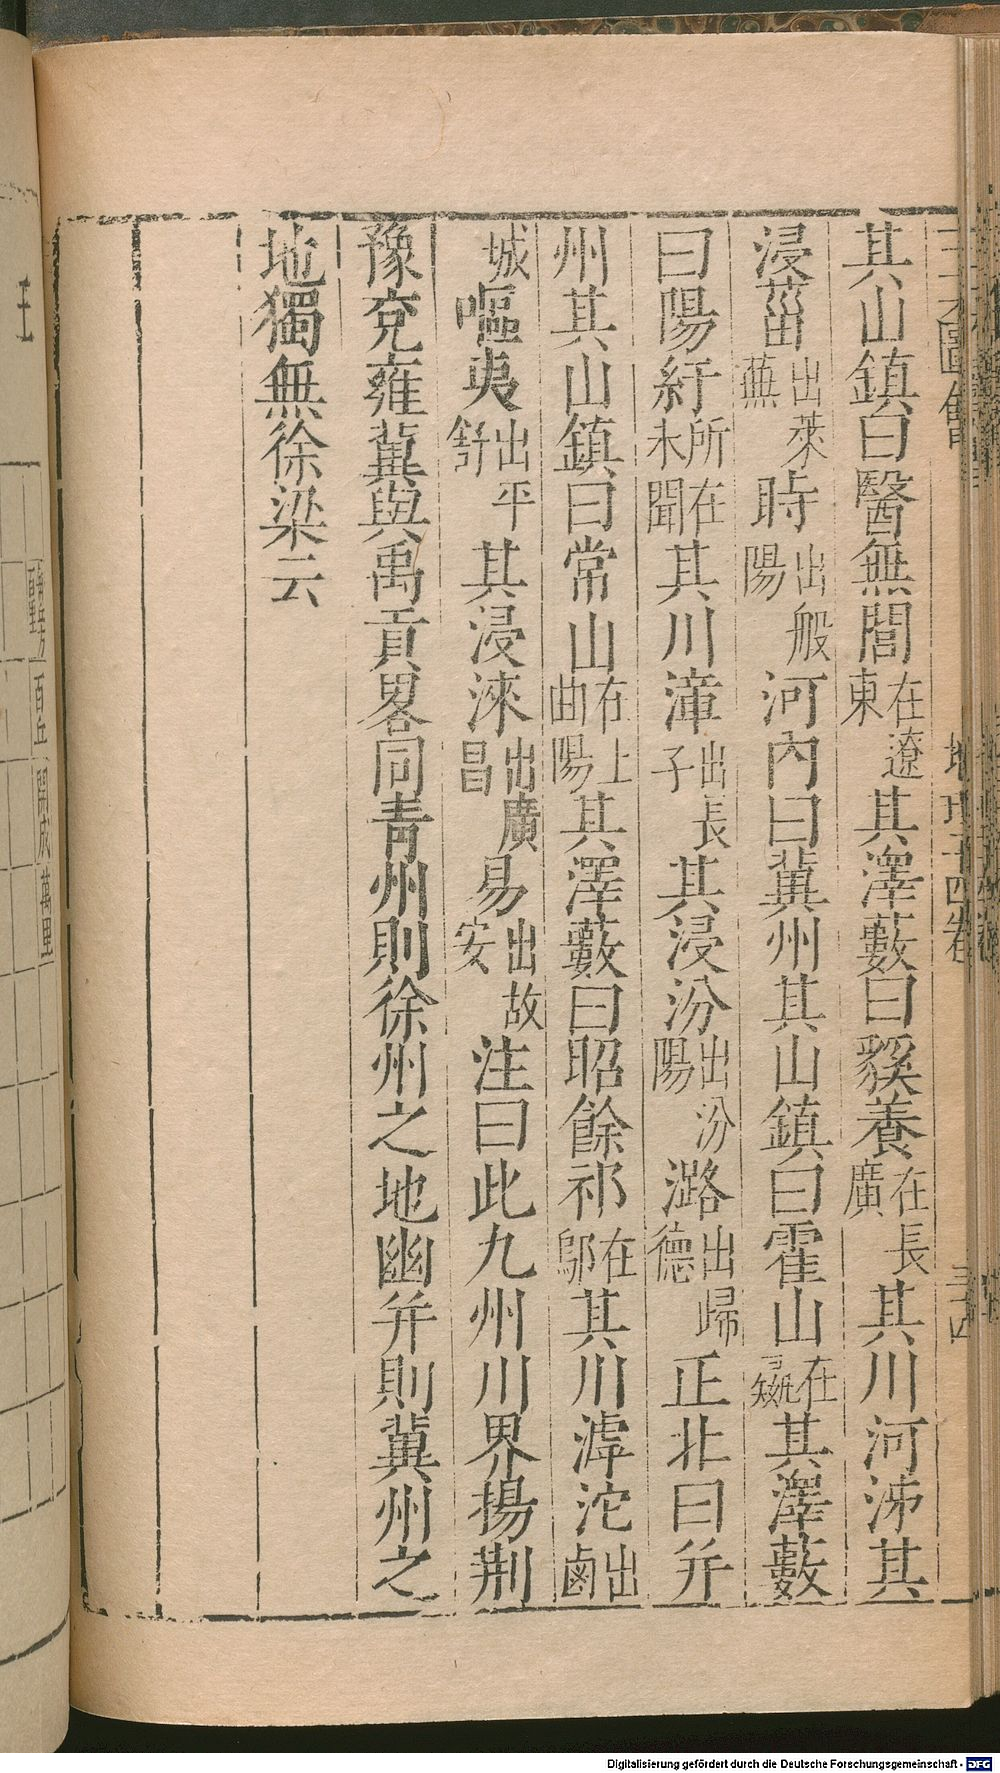 其山鎮曰醫無閭在遼東其澤藪曰貕養在長廣其川河泲其
浸菑出萊蕪時出般陽河內曰冀州其山鎮曰霍山在彘其澤藪
曰陽紆所在未聞其川漳出長子其浸汾出汾陽潞出歸德正北曰并
州其山鎮曰常山在上曲陽其澤藪曰昭餘祁在鄔其川滹沱出鹵
城嘔夷出平舒其浸淶出廣昌易出故安注曰此九州川界揚荆
豫兗雍冀與禹貢畧同青州則徐州之地幽并則冀州之
地獨無徐梁云
Digitalisierung gefördert durch die Deutsche Forschungsgemeinschaft - DFG